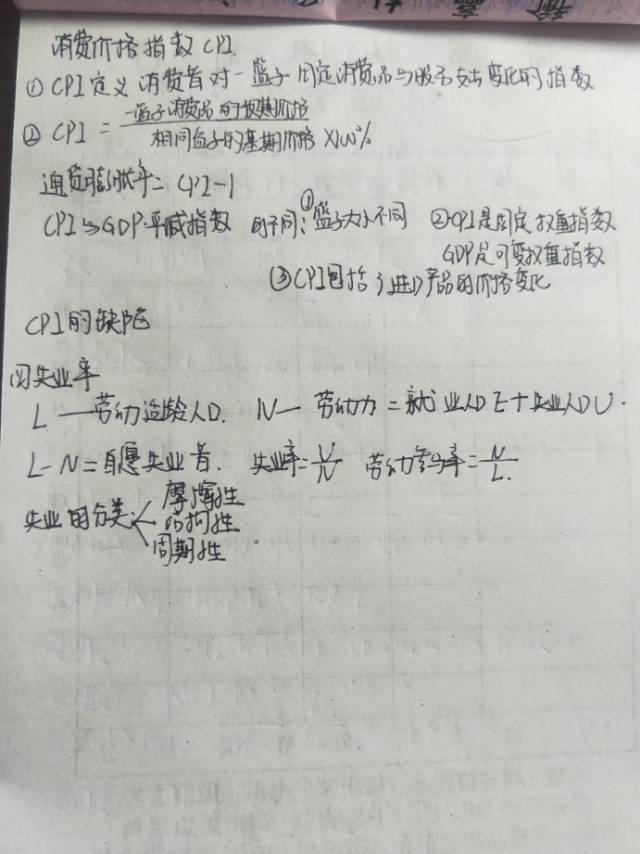 消费价格指数 CPI
① CPI定义 消费者对一篮子固定消费品与服务支出变化的指数
② CPI = 一篮子消费品的现期价格 / 相同篮子的基期价格 ×100%
通货膨胀率 = CPI-1
CPI与GDP平减指数 的不同: ①篮子大小不同 ②CPI是固定权重指数
GDP是可变权重指数
③CPI包括了进口产品的价格变化
CPI的缺陷
失业率
L — 劳动适龄人口. N — 劳动力 = 就业人口E + 失业人口U.
L-N = 自愿失业者. 失业率 = U/N 劳动参与率 = N/L.
失业的分类: 摩擦性
结构性
周期性